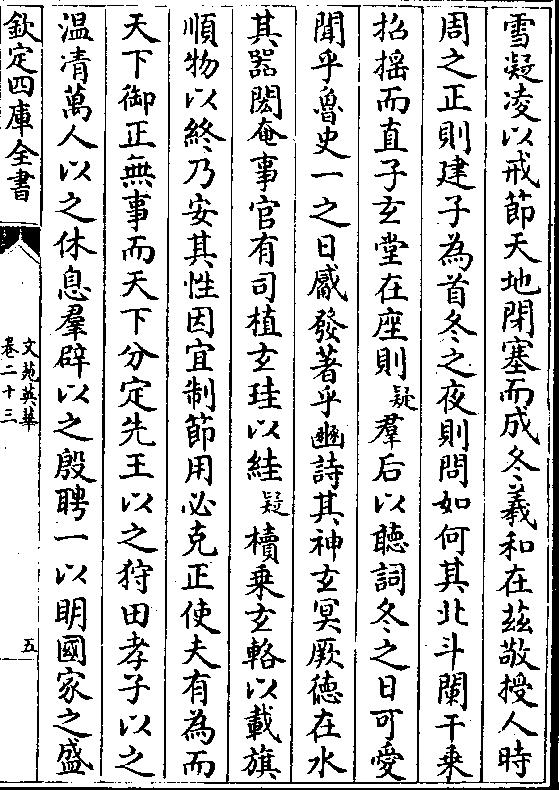 雪凝凌以戒節天地閉塞而成冬羲和在茲敬授人時
周之正則建子為首冬之夜則問如何其北斗闌干乗
招揺而直子玄堂在座則疑羣后以聽詞冬之日可愛
聞乎魯史一之日觱發著乎豳詩其神玄冥厥徳在水
其器閎奄事官有司植玄珪以絓疑櫝乗玄輅以載旗
順物以終乃安其性因宜制節用必克正使夫有為而
天下御正無事而天下分定先王以之狩田孝子以之
温凊萬人以之休息羣辟以之殷聘一以明國家之盛
欽定四庫全書
文苑英華
卷二十三
五